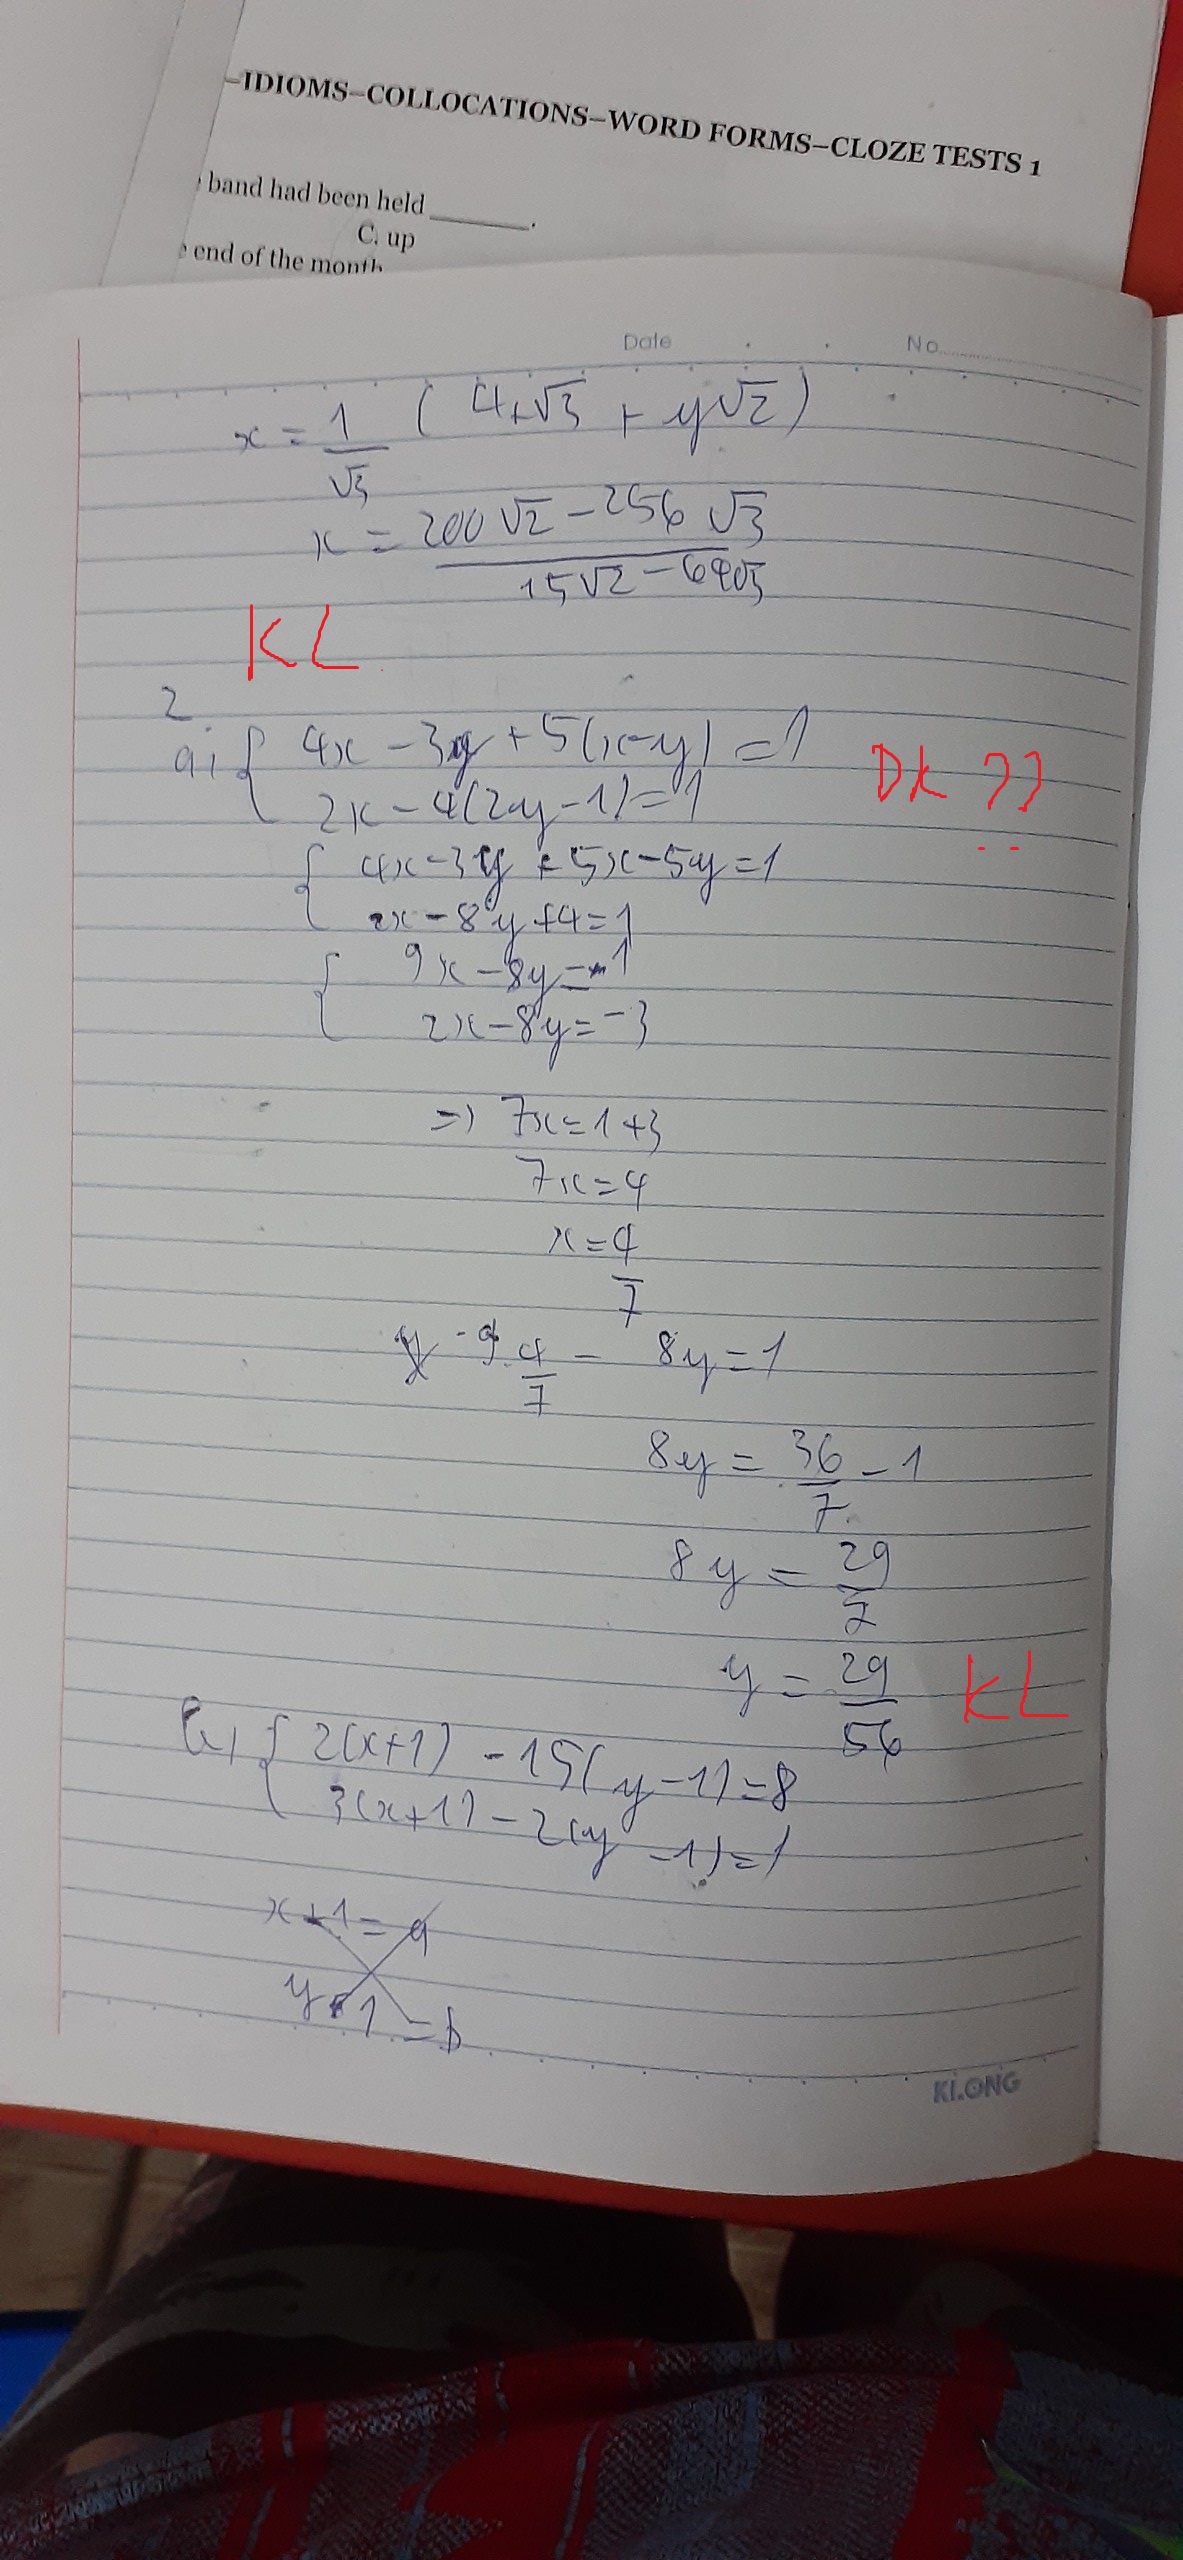 –IDIOMS–COLLOCATIONS–WORD FORMS–CLOZE TESTS 1
band had been held ________.
C. up
end of the month
Date
No
x = 1/√3 ( 4+√3 + y√2 )
x = (200√2 − 256√3)/(15√2 − 64√3)
KL
2
a) { 4x − 3y + 5(x−y) = 1
2x − 4(2y − 1) = 1
ĐK ??
{ 4x − 3y + 5x − 5y = 1
2x − 8y + 4 = 1
{ 9x − 8y = 1
2x − 8y = −3
=> 7x = 1 + 3
7x = 4
x = 4/7
9. 4/7 − 8y = 1
8y = 36/7 − 1
8y = 29/7
y = 29/56
KL
b) { 2(x+1) − 15(y−1) = 8
3(x+1) − 2(y−1) = 1
x + 1 = a
y − 1 = b
KLONG